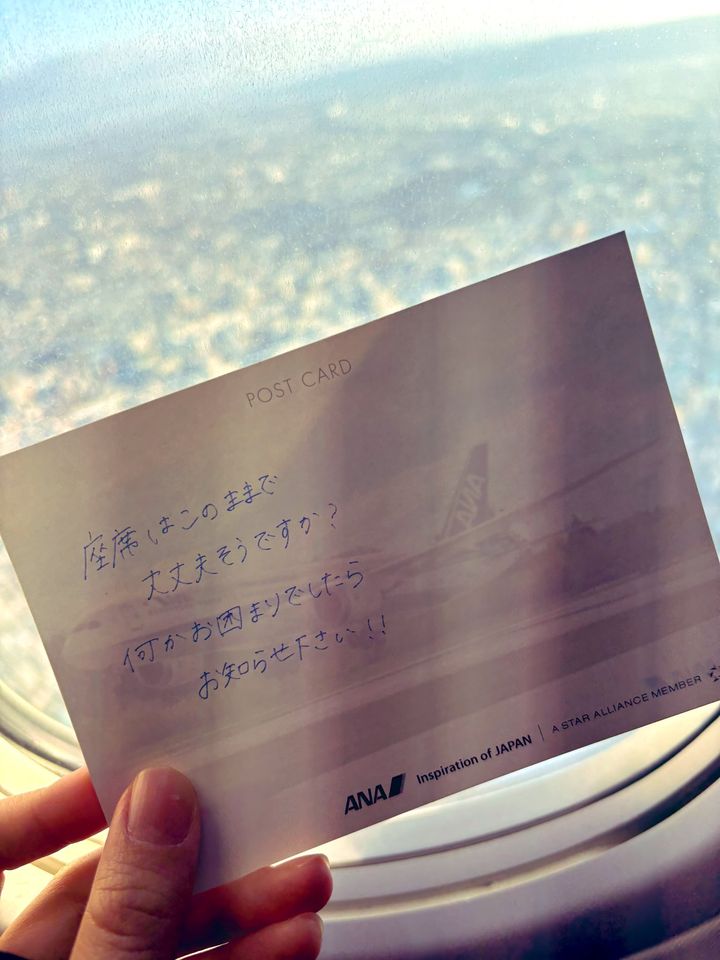 POST CARD
座席はこのままで
大丈夫そうですか?
何かお困まりでしたら
お知らせ下さい!!
ANA
ANA Inspiration of JAPAN | A STAR ALLIANCE MEMBER